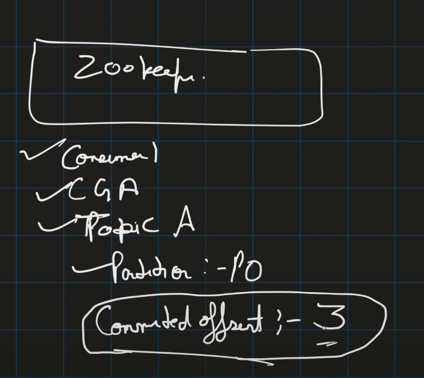 Zookeeper.
Consumer 1
CGA
Topic A
Partition :- P0
Commited offset :- 3